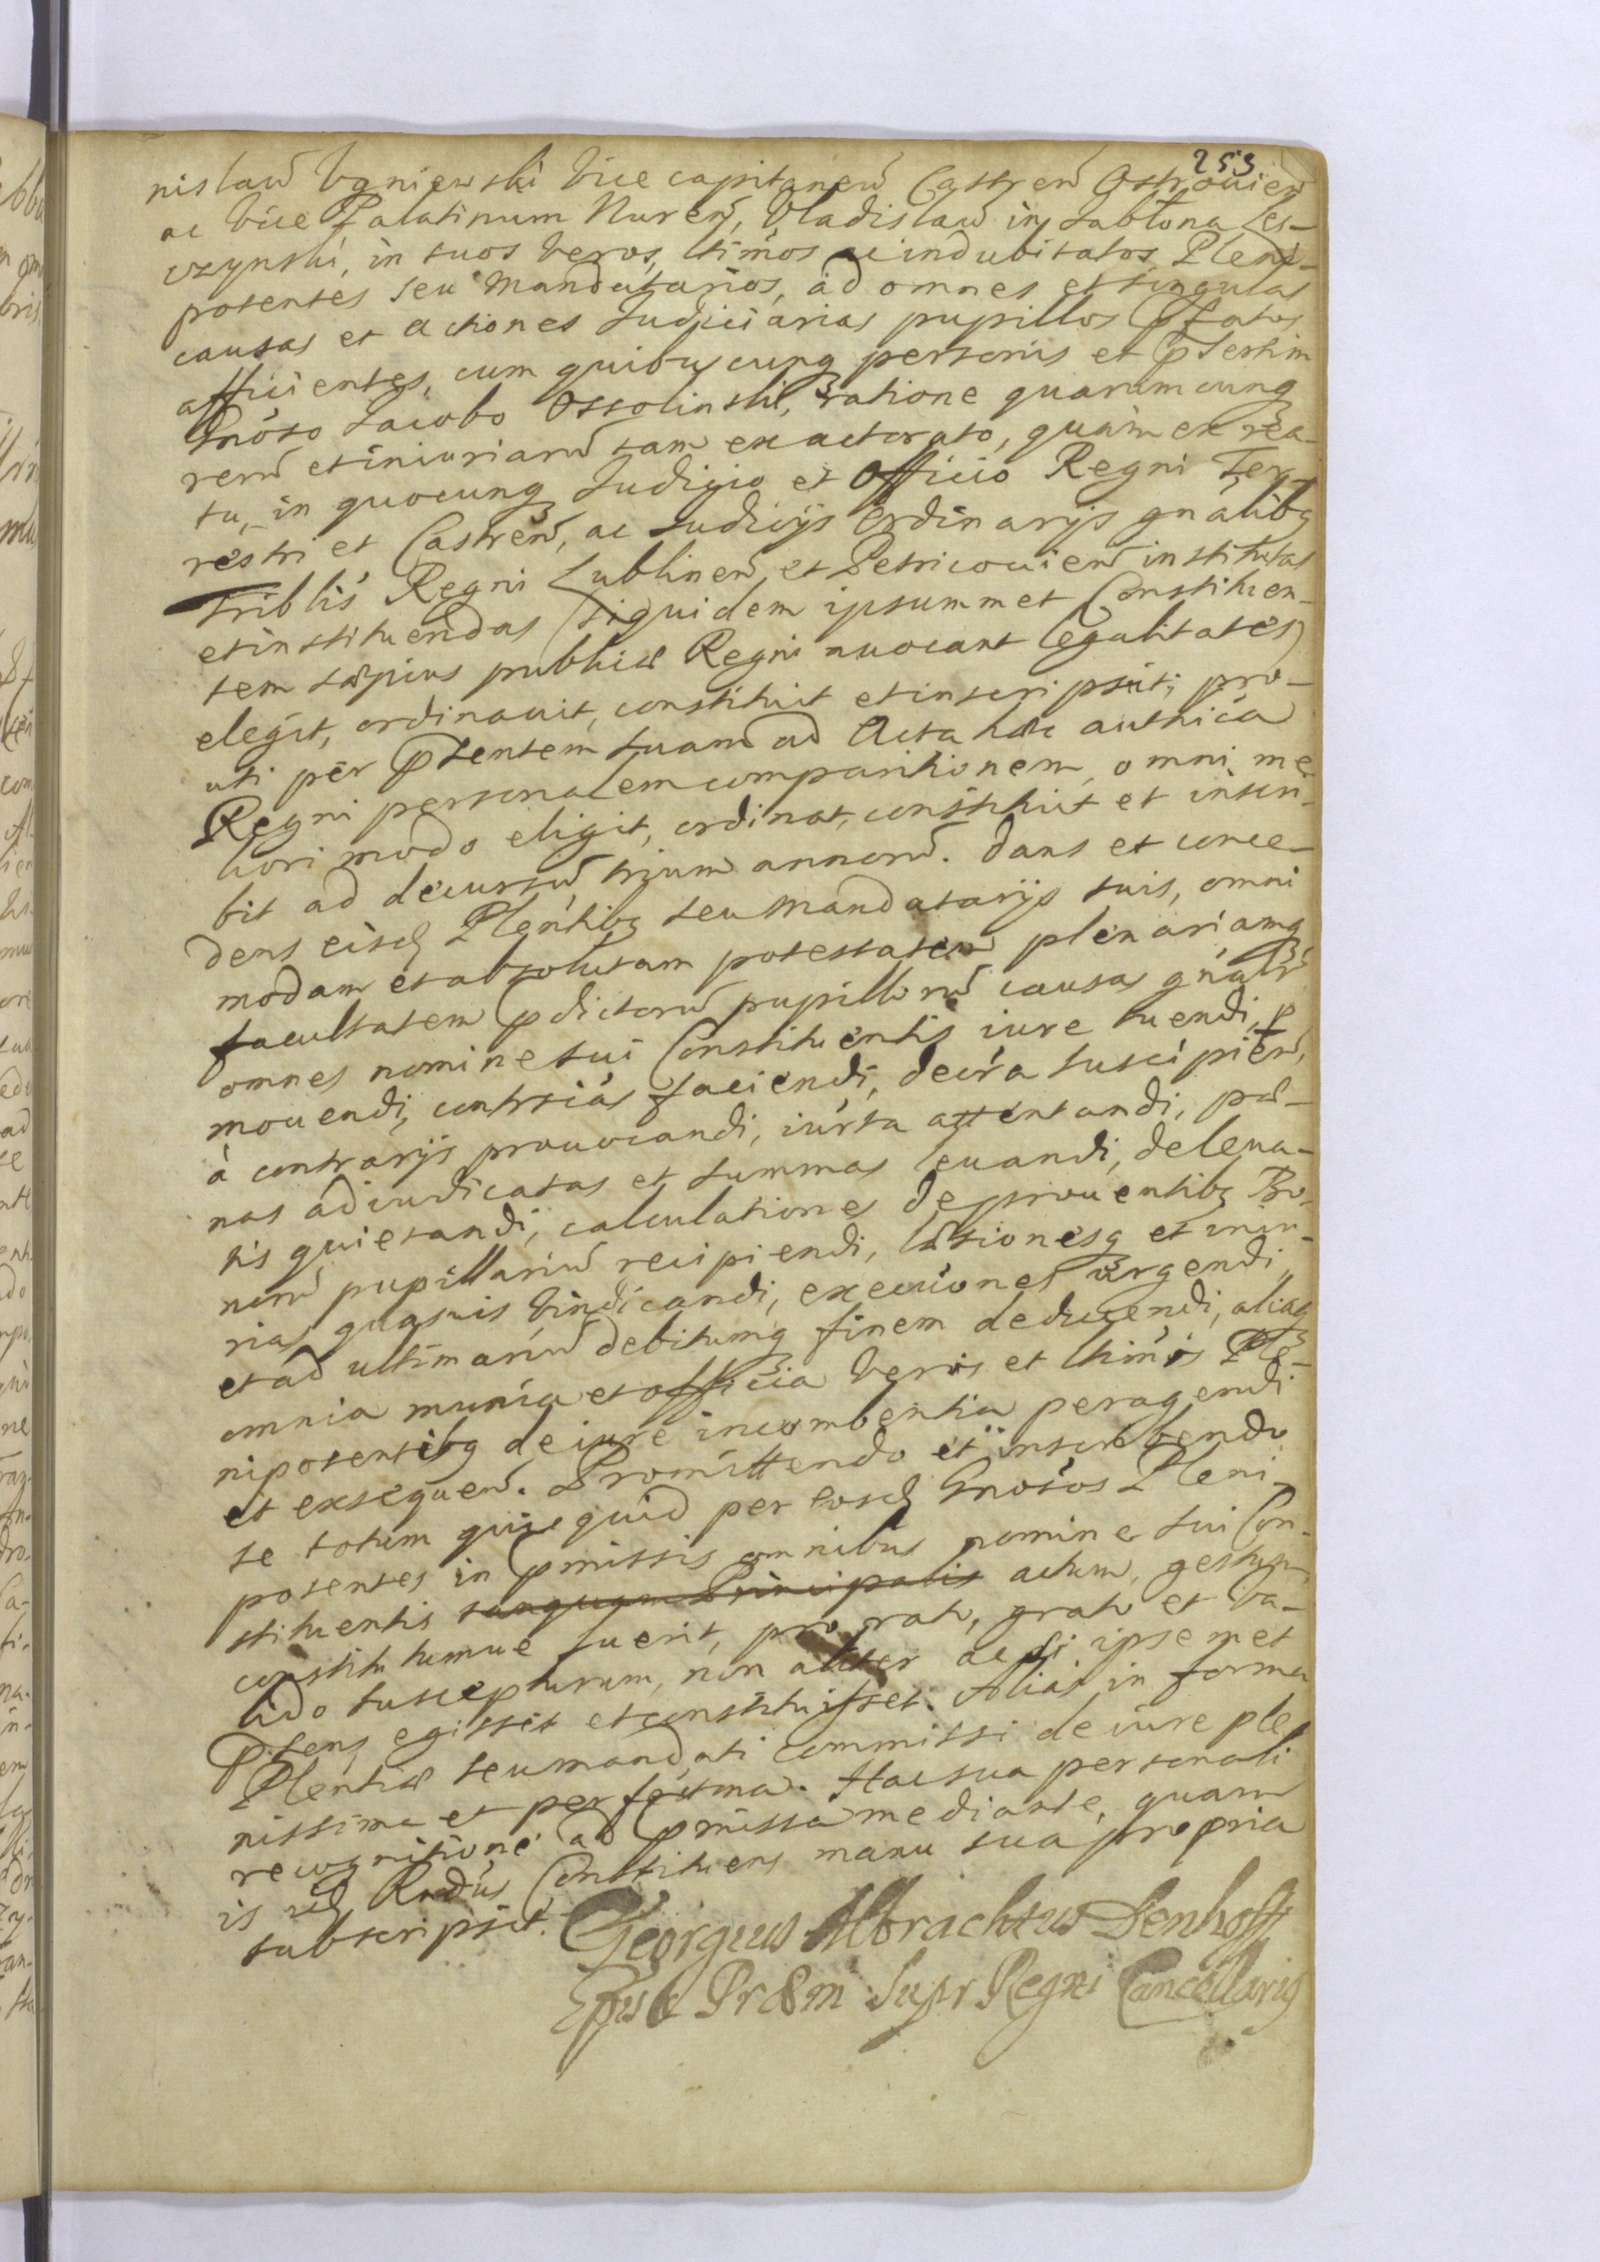 253
nislaũ Vgniewski Vice capitaneũ Castren Ostrouien
ac Vice Palatinum Nureñ, Vladislaũ in Jabłona Les-
czynski, in suos veros, ltimos ac indubitatos Pleni-
potentes seu Mandatarios, ad omnes et singulas
causas et actiones Judiciarias pupillos pfatos
afficientes, cum quibuscunq personis et psertim
Gnoso Jacobo Ossolinski, ratione quarumcunq
rerũ et iniuriarũ tam ex actorato, quàm ex rea-
tu, in quocunq Judicio et Officio Regni Ter-
restri et Castreñ, ac Judicijs Ordinarijs gnalibq
Triblis Regni Lublineñ et Petricouieñ institutas
et instituendas (siquidem ipsummet Constituen-
tem sæpius publicæ Regni auocant legalitates)
elegit, ordinauit, constituit et inscripsit; pro-
uti per psentem suam ad Acta hæc authica
Regni personalem comparitionem, omni me-
liori modo eligit, ordinat, constituit et inscri-
bit ad decursũ trium annorũ. Dans et conce-
dens eisd Plentibq seu Mandatarijs suis, omni
modam et absolutam potestatem plenariamq
facultatem pdictorũ pupillorũ causas gnalr
omnes nomine sui Constituentis iure tuendi, p
mouendi, contrcias faciendi, decra suscipieñ,
à contrarijs prouocandi, iurta attentandi, pæ-
nas adiudicatas et summas leuandi, de leua-
tis quietandi, calculationes de prouentibq Bo-
norũ pupillariũ recipiendi, læsionesq et iniu-
rias quasuis vindicandi, executiones urgendi,
et ad ultimariũ debitumq finem deducendi, aliaq
omnia munia et officia veris et ltimis Ple-
nipotentibq de iure incumbentia peragendi
et exsequeñ. Promittendo et inscribendo
se totum quicquid per eosd Gnosos Pleni-
potentes in pmissis omnibus nomine sui Con-
stituentis tanquam Principalis actum, gestum,
constitutumue fuerit, pro rato, grato et va-
lido suscepturum, non aliter ac si ipsemet
psens egisset et constituisset. Alias in forma
Plentiæ seu mandati commissi de iure ple
nissima et perfectma. Hac sua personali
recognitione ad pmissa mediante, quam
is id Rndus Constituens manu sua propria
subscripsit.
Georgius Albrachtus Denhoff
Epus Præm Supr Regni Cancellariq